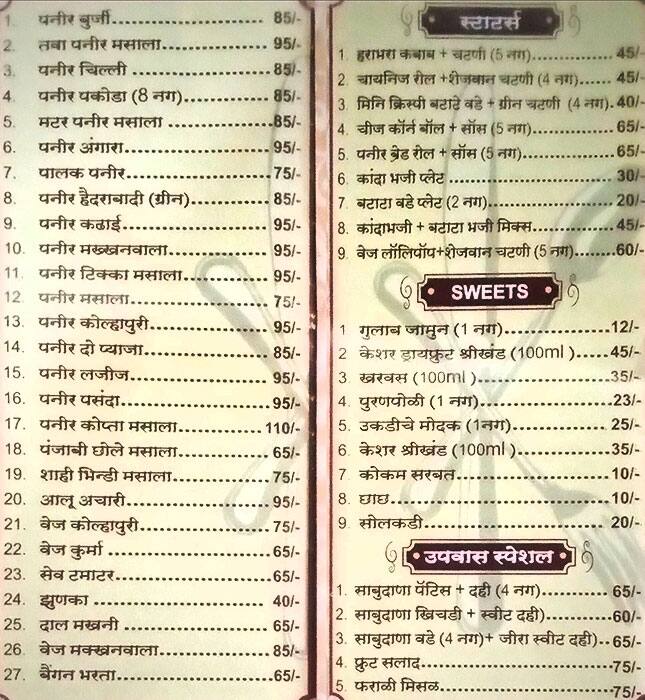 1. पनीर बुर्जी..................... 85/-
2. तवा पनीर मसाला.............. 95/-
3. पनीर चिल्ली..................... 85/-
4. पनीर पकोडा (8 नग)............85/-
5. मटर पनीर मसाला...............85/-
6. पनीर अंगारा......................95/-
7. पालक पनीर.....................75/-
8. पनीर हैदराबादी (ग्रीन)...........85/-
9. पनीर कढाई.......................95/-
10. पनीर मख्खनवाला...............95/-
11. पनीर टिक्का मसाला.............95/-
12. पनीर मसाला.....................75/-
13. पनीर कोल्हापुरी...................95/-
14. पनीर दो प्याजा...................85/-
15. पनीर लजीज.....................95/-
16. पनीर पसंदा.......................95/-
17. पनीर कोप्ता मसाला..............110/-
18. पंजाबी छोले मसाला..............65/-
19. शाही भिन्डी मसाला...............75/-
20. आलू अचारी......................95/-
21. वेज कोल्हापुरी....................75/-
22. वेज कुर्मा.........................65/-
23. सेव टमाटर.......................65/-
24. झुणका ........................... 40/-
25. दाल मखनी ......................65/-
26. वेज मक्खनवाला.................85/-
27. बैंगन भरता.......................65/-
स्टाटर्स
1. हराभरा कबाब + चटणी (5 नग)..............45/-
2. चायनिज रोल +शेजवान चटणी (4 नग)......45/-
3. मिनि क्रिस्पी बटाटे वडे + ग्रीन चटणी (4 नग). 40/-
4. चीज कॉर्न बॉल + सॉस (5 नग)..............65/-
5. पनीर ब्रेड रोल + सॉस (5 नग)...............65/-
6. कांदा भजी प्लेट ............................30/-
7. बटाटा वडे प्लेट (2 नग)....................20/-
8. कांदाभजी + बटाटा भजी मिक्स..............45/-
9. वेज लॉलिपॉप+शेजवान चटणी (5 नग)......60/-
SWEETS
1 गुलाब जामुन (1 नग)..................12/-
2 केशर ड्रायफ्रुट श्रीखंड (100ml )......45/-
3. खरवस (100ml )......................35/-
4. पुरणपोळी (1 नग)......................23/-
5. उकडीचे मोदक (1नग)................ 25/-
6. केशर श्रीखंड (100ml )...............35/-
7. कोकम सरबत..........................10/-
8. छाछ....................................10/-
9. सोलकडी...............................20/-
उपवास स्पेशल
1. साबुदाणा पॅटिस + दही (4 नग)..........65/-
2. साबुदाणा खिचडी + स्वीट दही)..........60/-
3. साबुदाणा वडे (4 नग)+ जीरा स्वीट दही)..65/-
4. फ्रुट सलाद..............................75/-
5. फराळी मिसळ...........................75/-